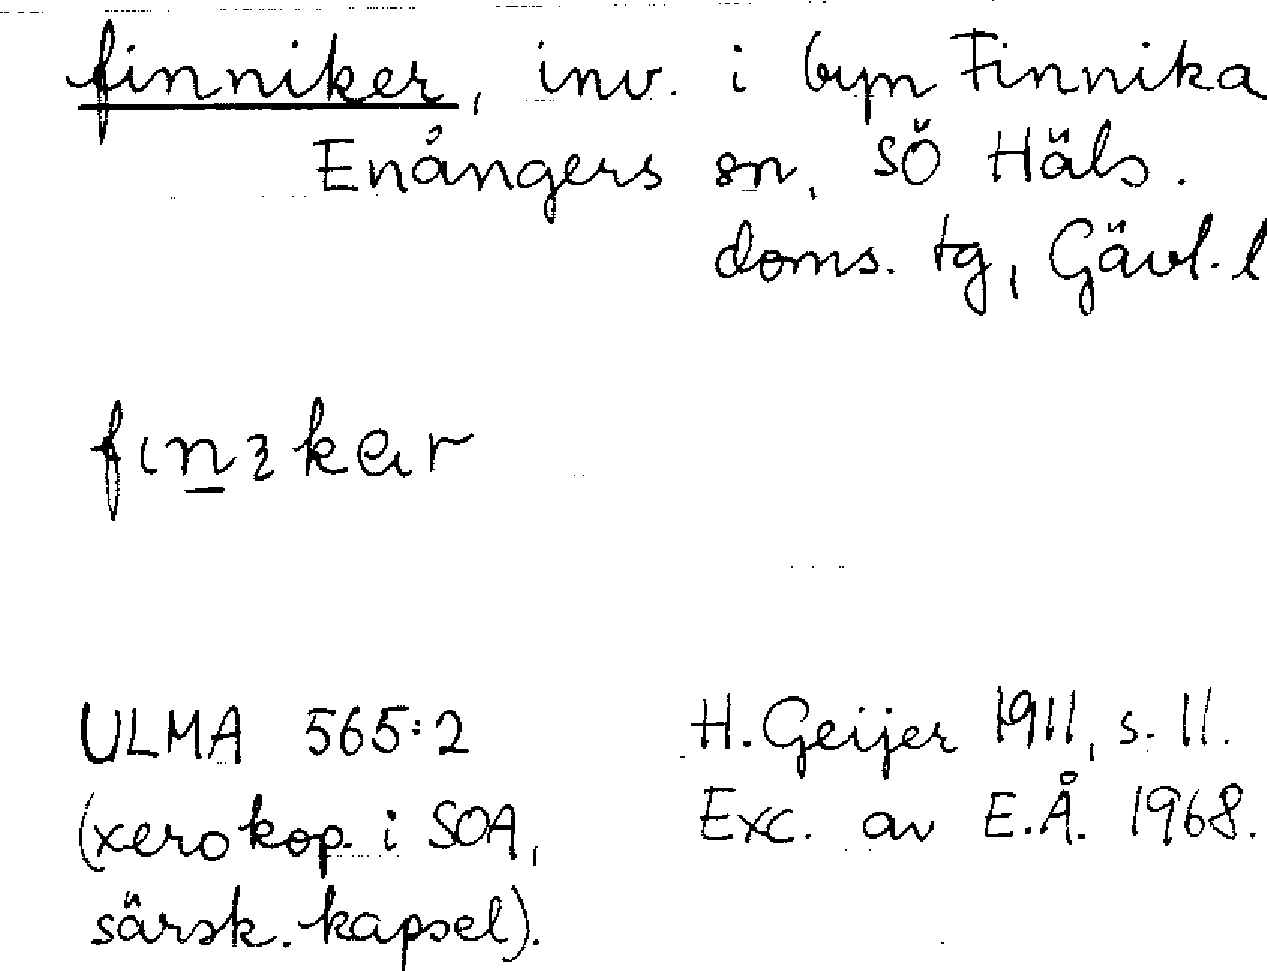 finniker, inv. i byn Finnika
Enångers sn, SÖ Häls.
doms. tg, Gävl. l
ULMA 565:2
(xerokop. i SOA,
särsk. kapsel).
H. Geijer 1911, s. 11.
Exc. av E.Å. 1968.